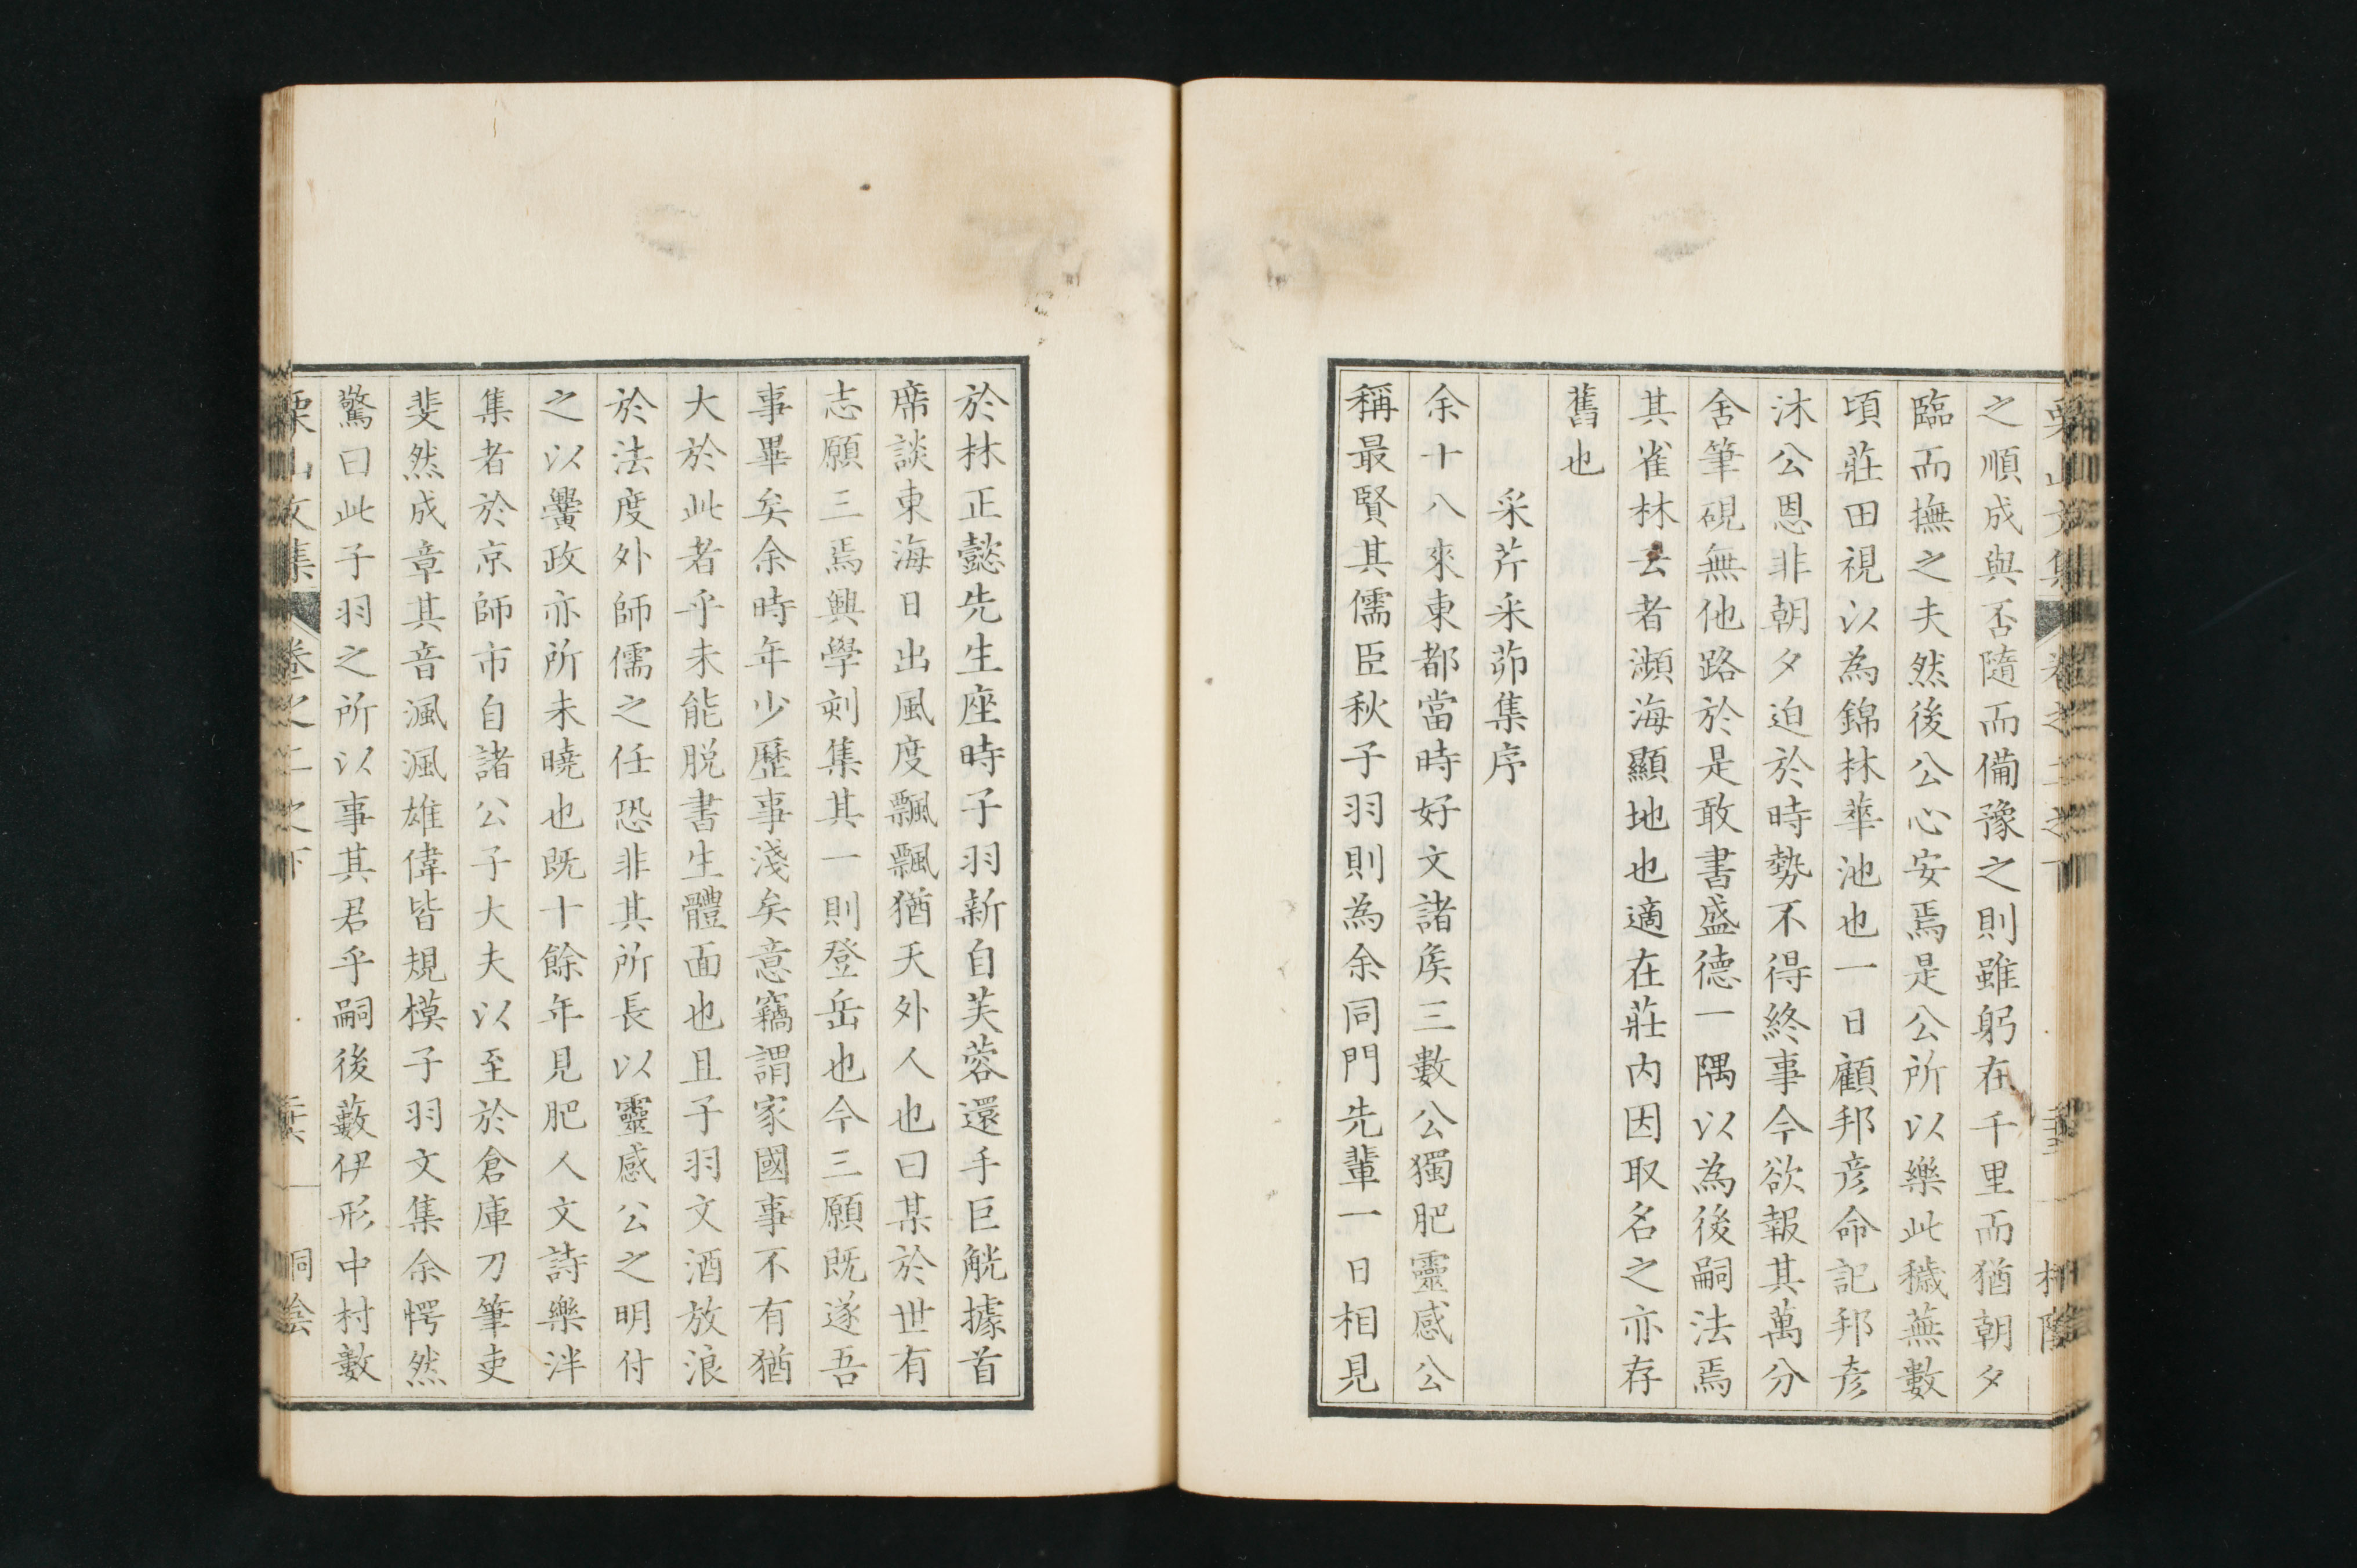 之順成與否隨而備豫之則雖躬在千里而猶朝夕
臨而撫之夫然後公心安焉是公所以樂此穢蕪數
頃莊田視以為錦林華池也一日顧邦彦命記邦彦
沐公恩非朝夕迫於時勢不得終事今欲報其萬分
舍筆硯無他路於是敢書盛德一隅以為後嗣法焉
其雀林云者瀕海顯地也適在莊内因取名之亦存
舊也
采芹采茆集序
余十八來東都當時好文諸矦三數公獨肥靈感公
稱最賢其儒臣秋子羽則為余同門先輩一日相見
於林正懿先生座時子羽新自芙蓉還手巨觥據首
席談東海日出風度飄飄猶天外人也曰某於世有
志願三焉興學刻集其一則登岳也今三願既遂吾
事畢矣余時年少歷事淺矣意竊謂家國事不有猶
大於此者乎未能脱書生體面也且子羽文酒放浪
於法度外師儒之任恐非其所長以靈感公之明付
之以黌政亦所未曉也既十餘年見肥人文詩樂泮
集者於京師市自諸公子大夫以至於倉庫刀筆吏
斐然成章其音渢渢雄偉皆規模子羽文集余愕然
驚曰此子羽之所以事其君乎嗣後藪伊形中村數
栗山文集 卷之二之下